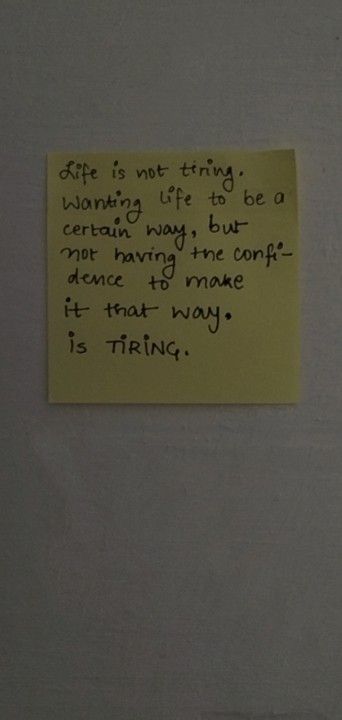 Life is not tiring.
Wanting life to be a
certain way, but
not having the confi-
dence to make
it that way.
is TIRING.